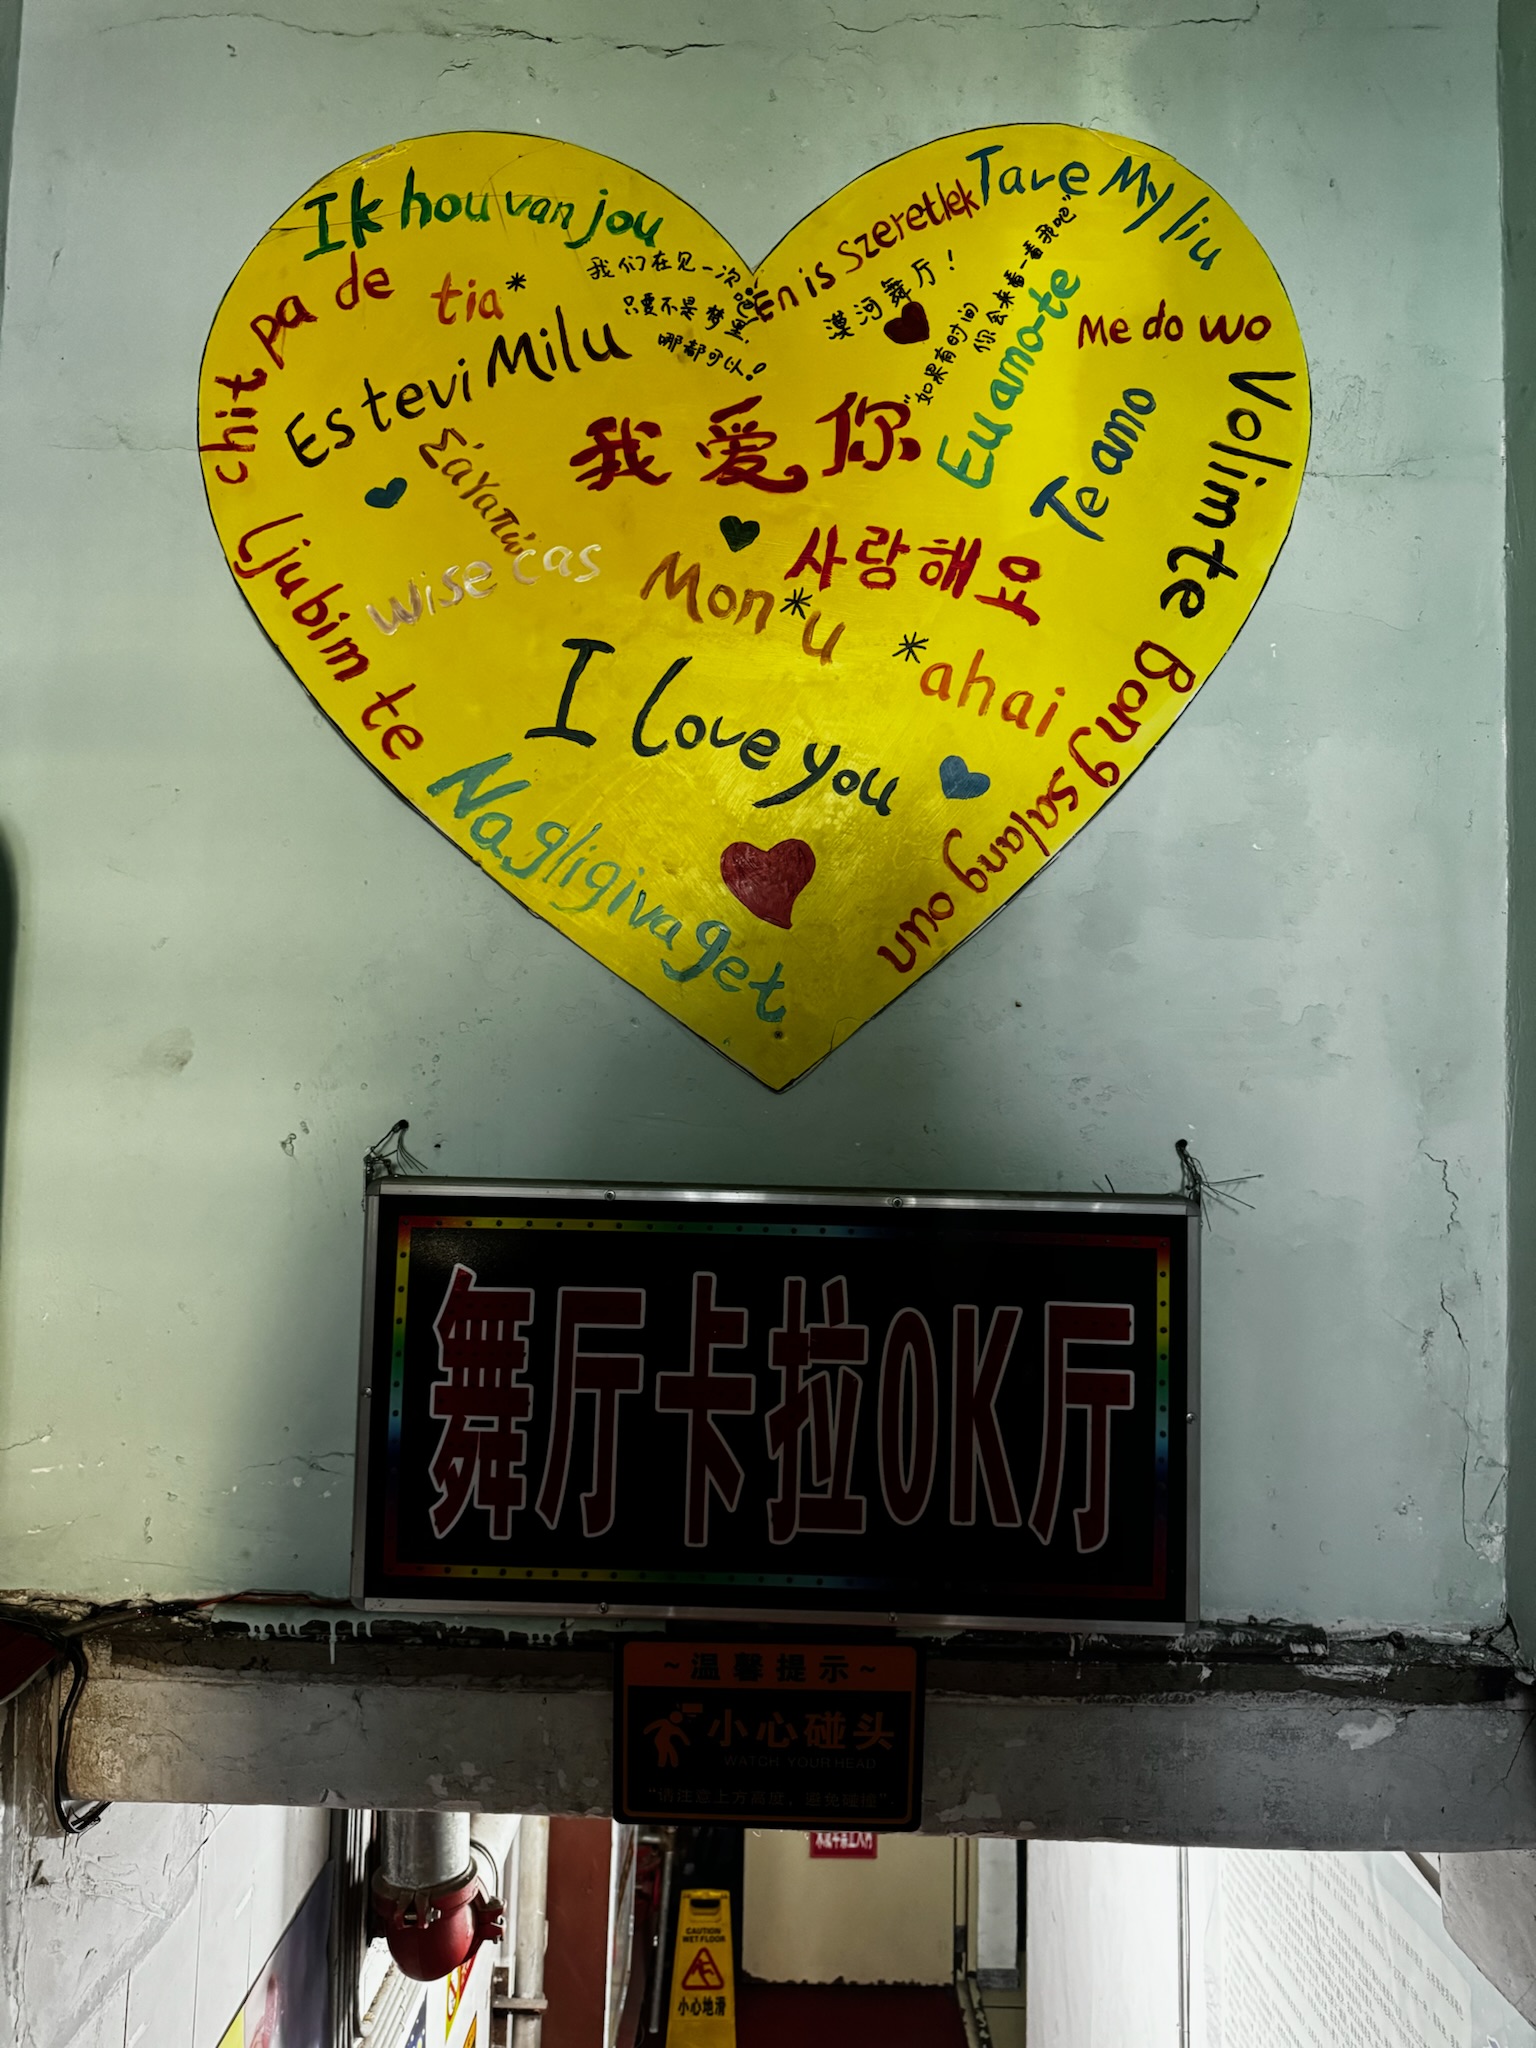 Ik hou van jou
Tave Myliu
En is szeretlek
chit pa de
tia*
我们在见一次
只要不是梦里,
哪都可以!
漠河舞厅!
"如果有时间
你会来看一看我吧"
Me do wo
Es tevi Milu
Eu amo-te
Te amo
Volim te
我爱你
Σάγαπώ
사랑해요
wise cas
Mon*u
*ahai
Ljubim te
I love you
Bong salang oun
Nagligivaget
舞厅卡拉OK厅
~温馨提示~
小心碰头
WATCH YOUR HEAD
"请注意上方高度,避免碰撞"
CAUTION
WET FLOOR
小心地滑